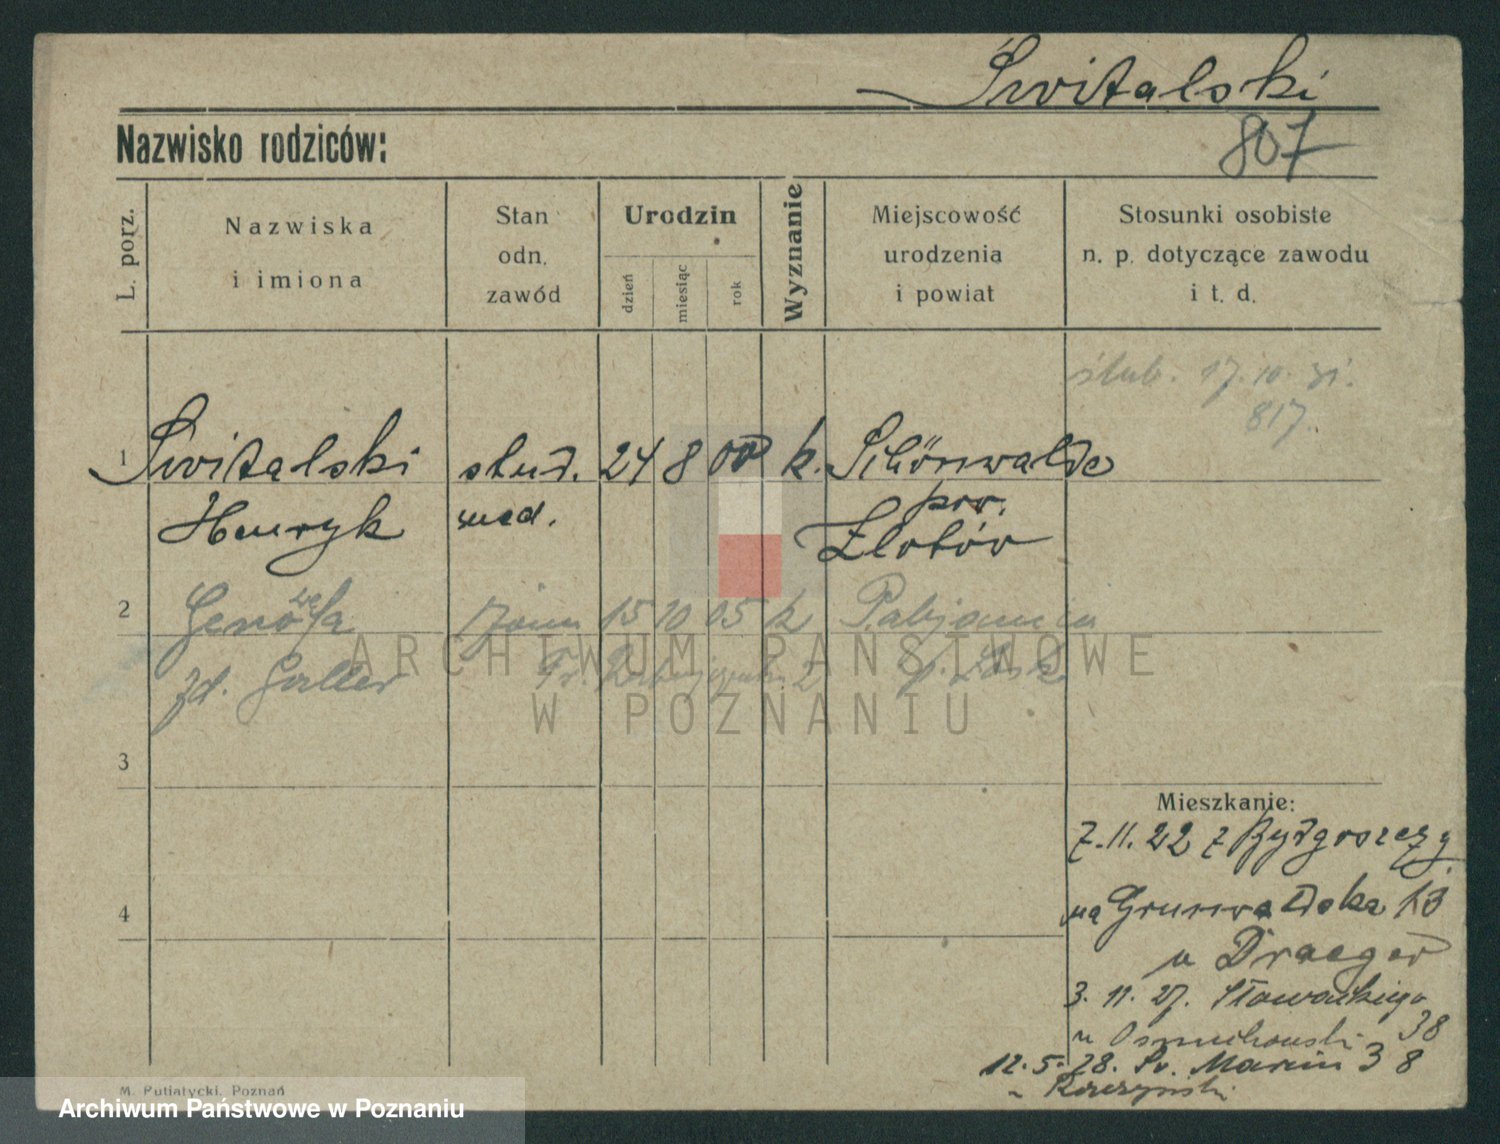 Świtalski
Nazwisko rodziców:
807
L. porz.
Nazwiska
i imiona
Stan
odn.
zawód
Urodzin
dzień
miesiąc
rok
Wyznanie
Miejscowość
urodzenia
i powiat
Stosunki osobiste
n. p. dotyczące zawodu
i t. d.
ślub. 17.10.31.
817.
1 Świtalski stud. 24 8 00 k. Schönwalde
Henryk med. pow.
Złotów
2 Genowefa 15 10 05 k Pabjanice
zd. Galler p. Łask
ARCHIWUM PAŃSTWOWE
W POZNANIU
3
Mieszkanie:
7.11.22 z Bydgoszczy
4
na Grunwaldska 13
u Draeger
3.11.27. Słowackiego
38
12.5.28. Św. Marcin 38
M. Putiatycki, Poznań
Archiwum Państwowe w Poznaniu